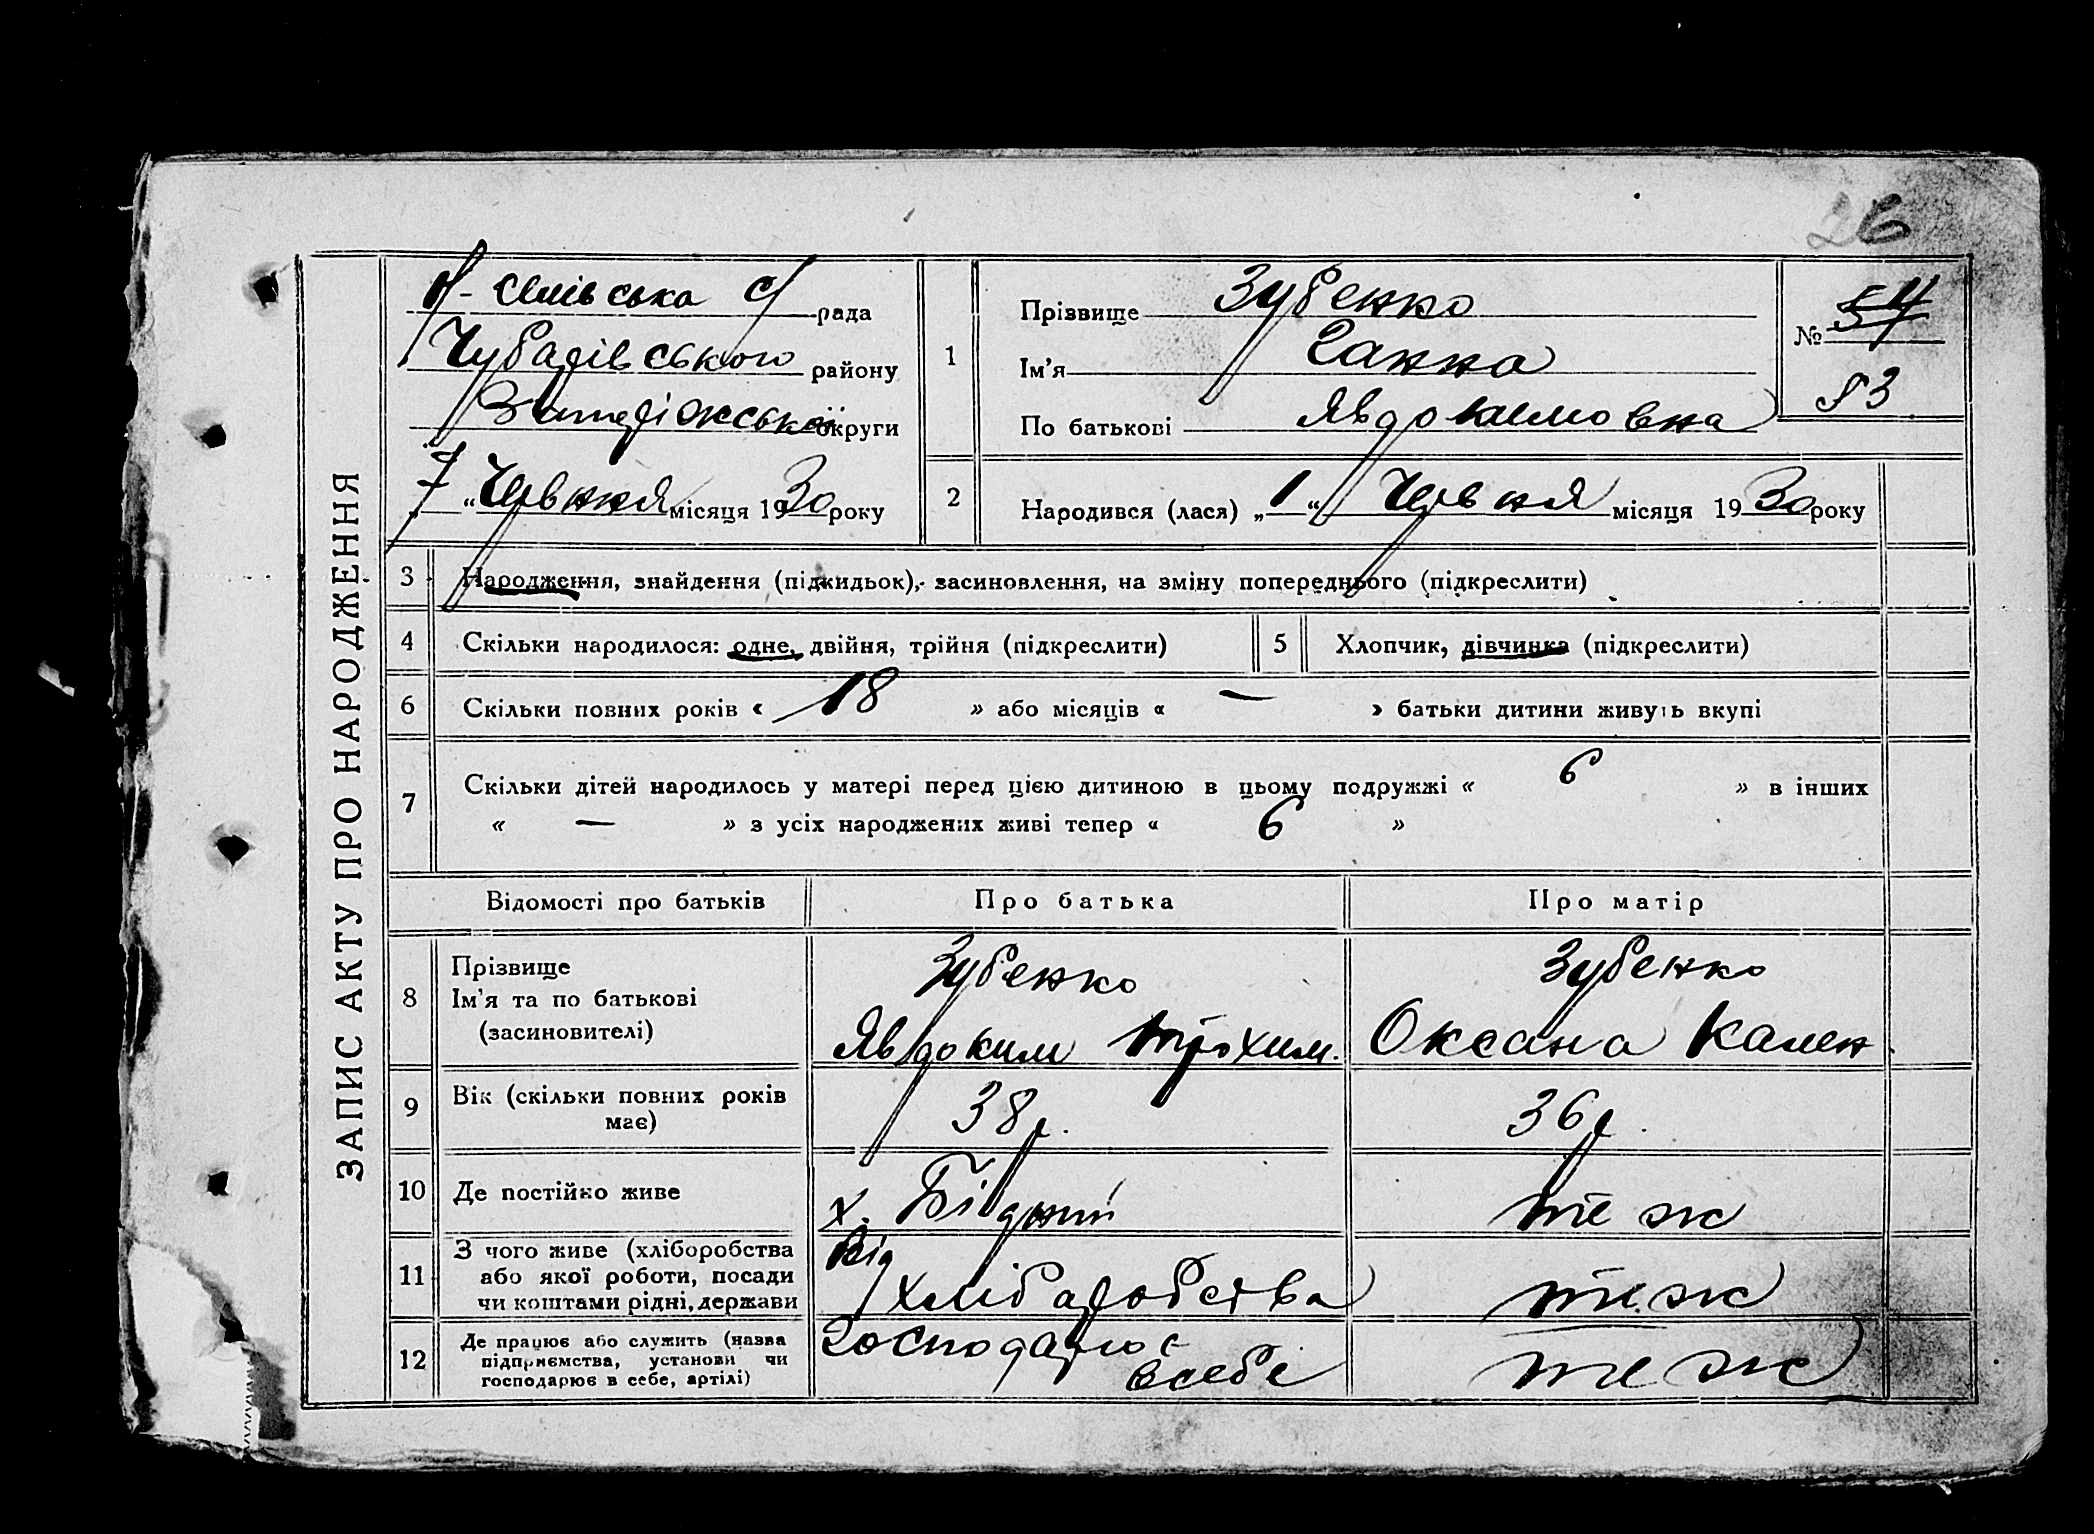 26
ЗАПИС АКТУ ПРО НАРОДЖЕННЯ
рада
Чубарівського району
округи
7 „ Червня місяця 1930 року
1
Прізвище Зубенко
Ім'я Ганна
По батькові Явдокимовна
№ 54
83
2
Народився (лася) „ 1 “ Червня місяця 1930 року
3 Народження, знайдення (підкидьок), засиновлення, на зміну попереднього (підкреслити)
4 Скільки народилося: одне, двійня, трійня (підкреслити)
5 Хлопчик, дівчинка (підкреслити)
6 Скільки повних років « 18 » або місяців « — » батьки дитини живуть вкупі
7 Скільки дітей народилось у матері перед цією дитиною в цьому подружжі « 6 » в інших
« — » з усіх народжених живі тепер « 6 »
Відомості про батьків
Про батька
Про матір
8
Прізвище
Ім'я та по батькові
(засиновителі)
Зубенко
Явдоким Трохим.
Зубенко
Оксана Кален.
9
Вік (скільки повних років
має)
38 р.
36 р.
10 Де постійно живе
х. Бідний
теж
11
З чого живе (хліборобства
або якої роботи, посади
чи коштами рідні, держави
Від
хліборобства
теж
12
Де працює або служить (назва
підприємства, установи чи
господарює в себе, артілі)
Господарює
всебе
теж